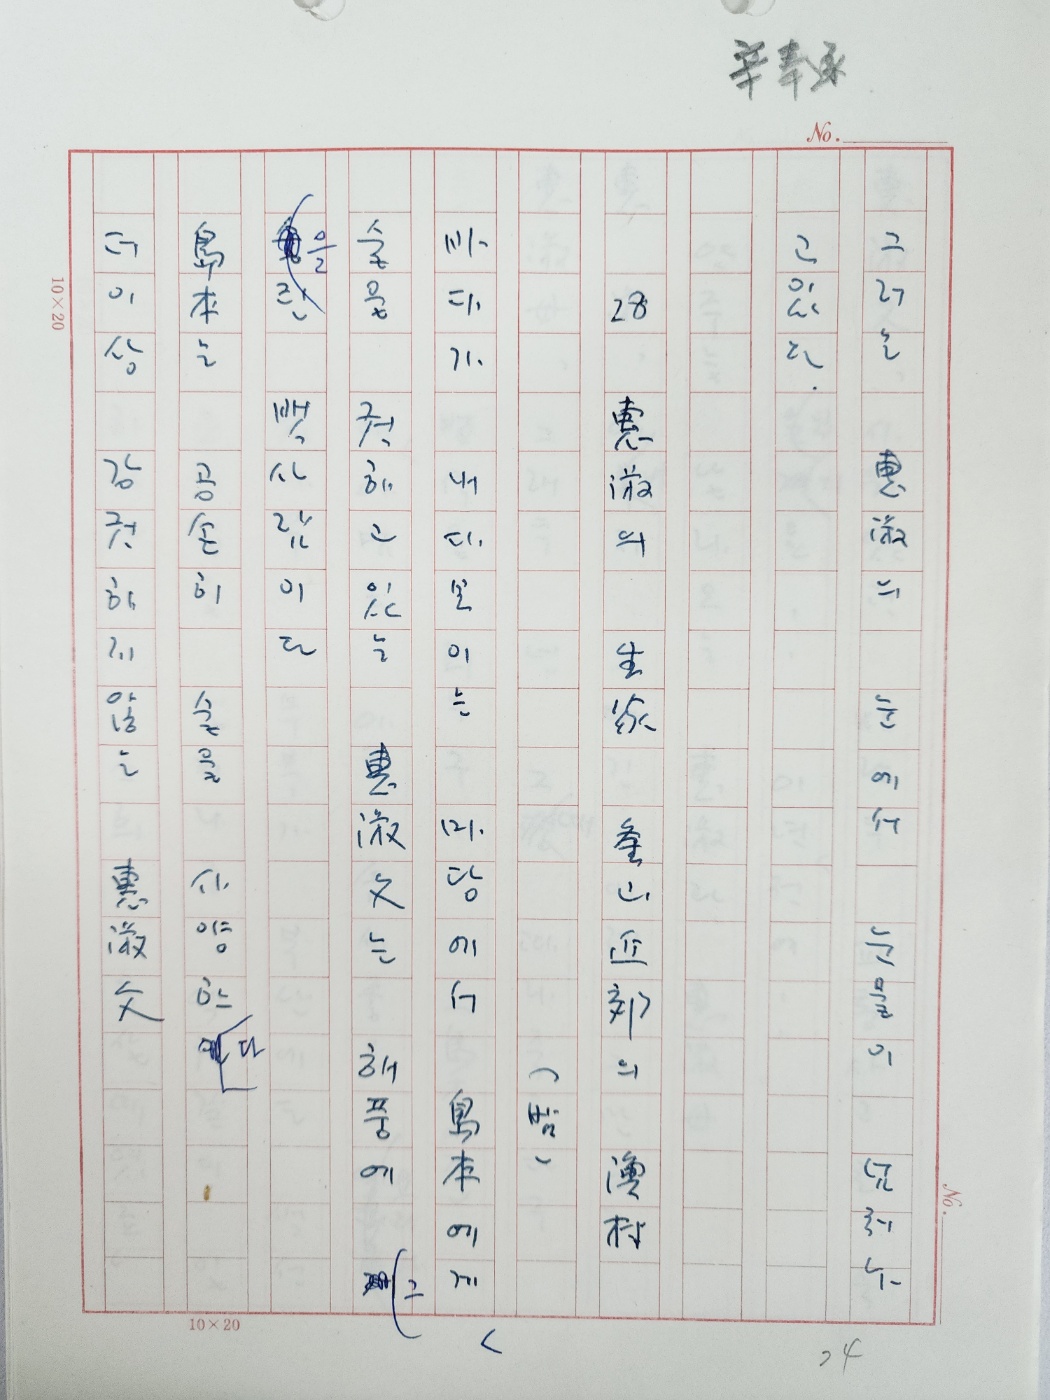 辛奉承
No.
그러는 惠淑의 눈에서 눈물이 넘쳐나
고 있다.
28 惠淑의 生家 釜山近郊의 漁村
(밤)
바다가 내다보이는 마당에서 島本에게
술을 권하고 있는 惠淑父는 해풍에 그
을린 뱃사람이다
島本는 공손히 술을 사양한다
더이상 강권하지 않는 惠淑父
10×20
10×20
No.
24